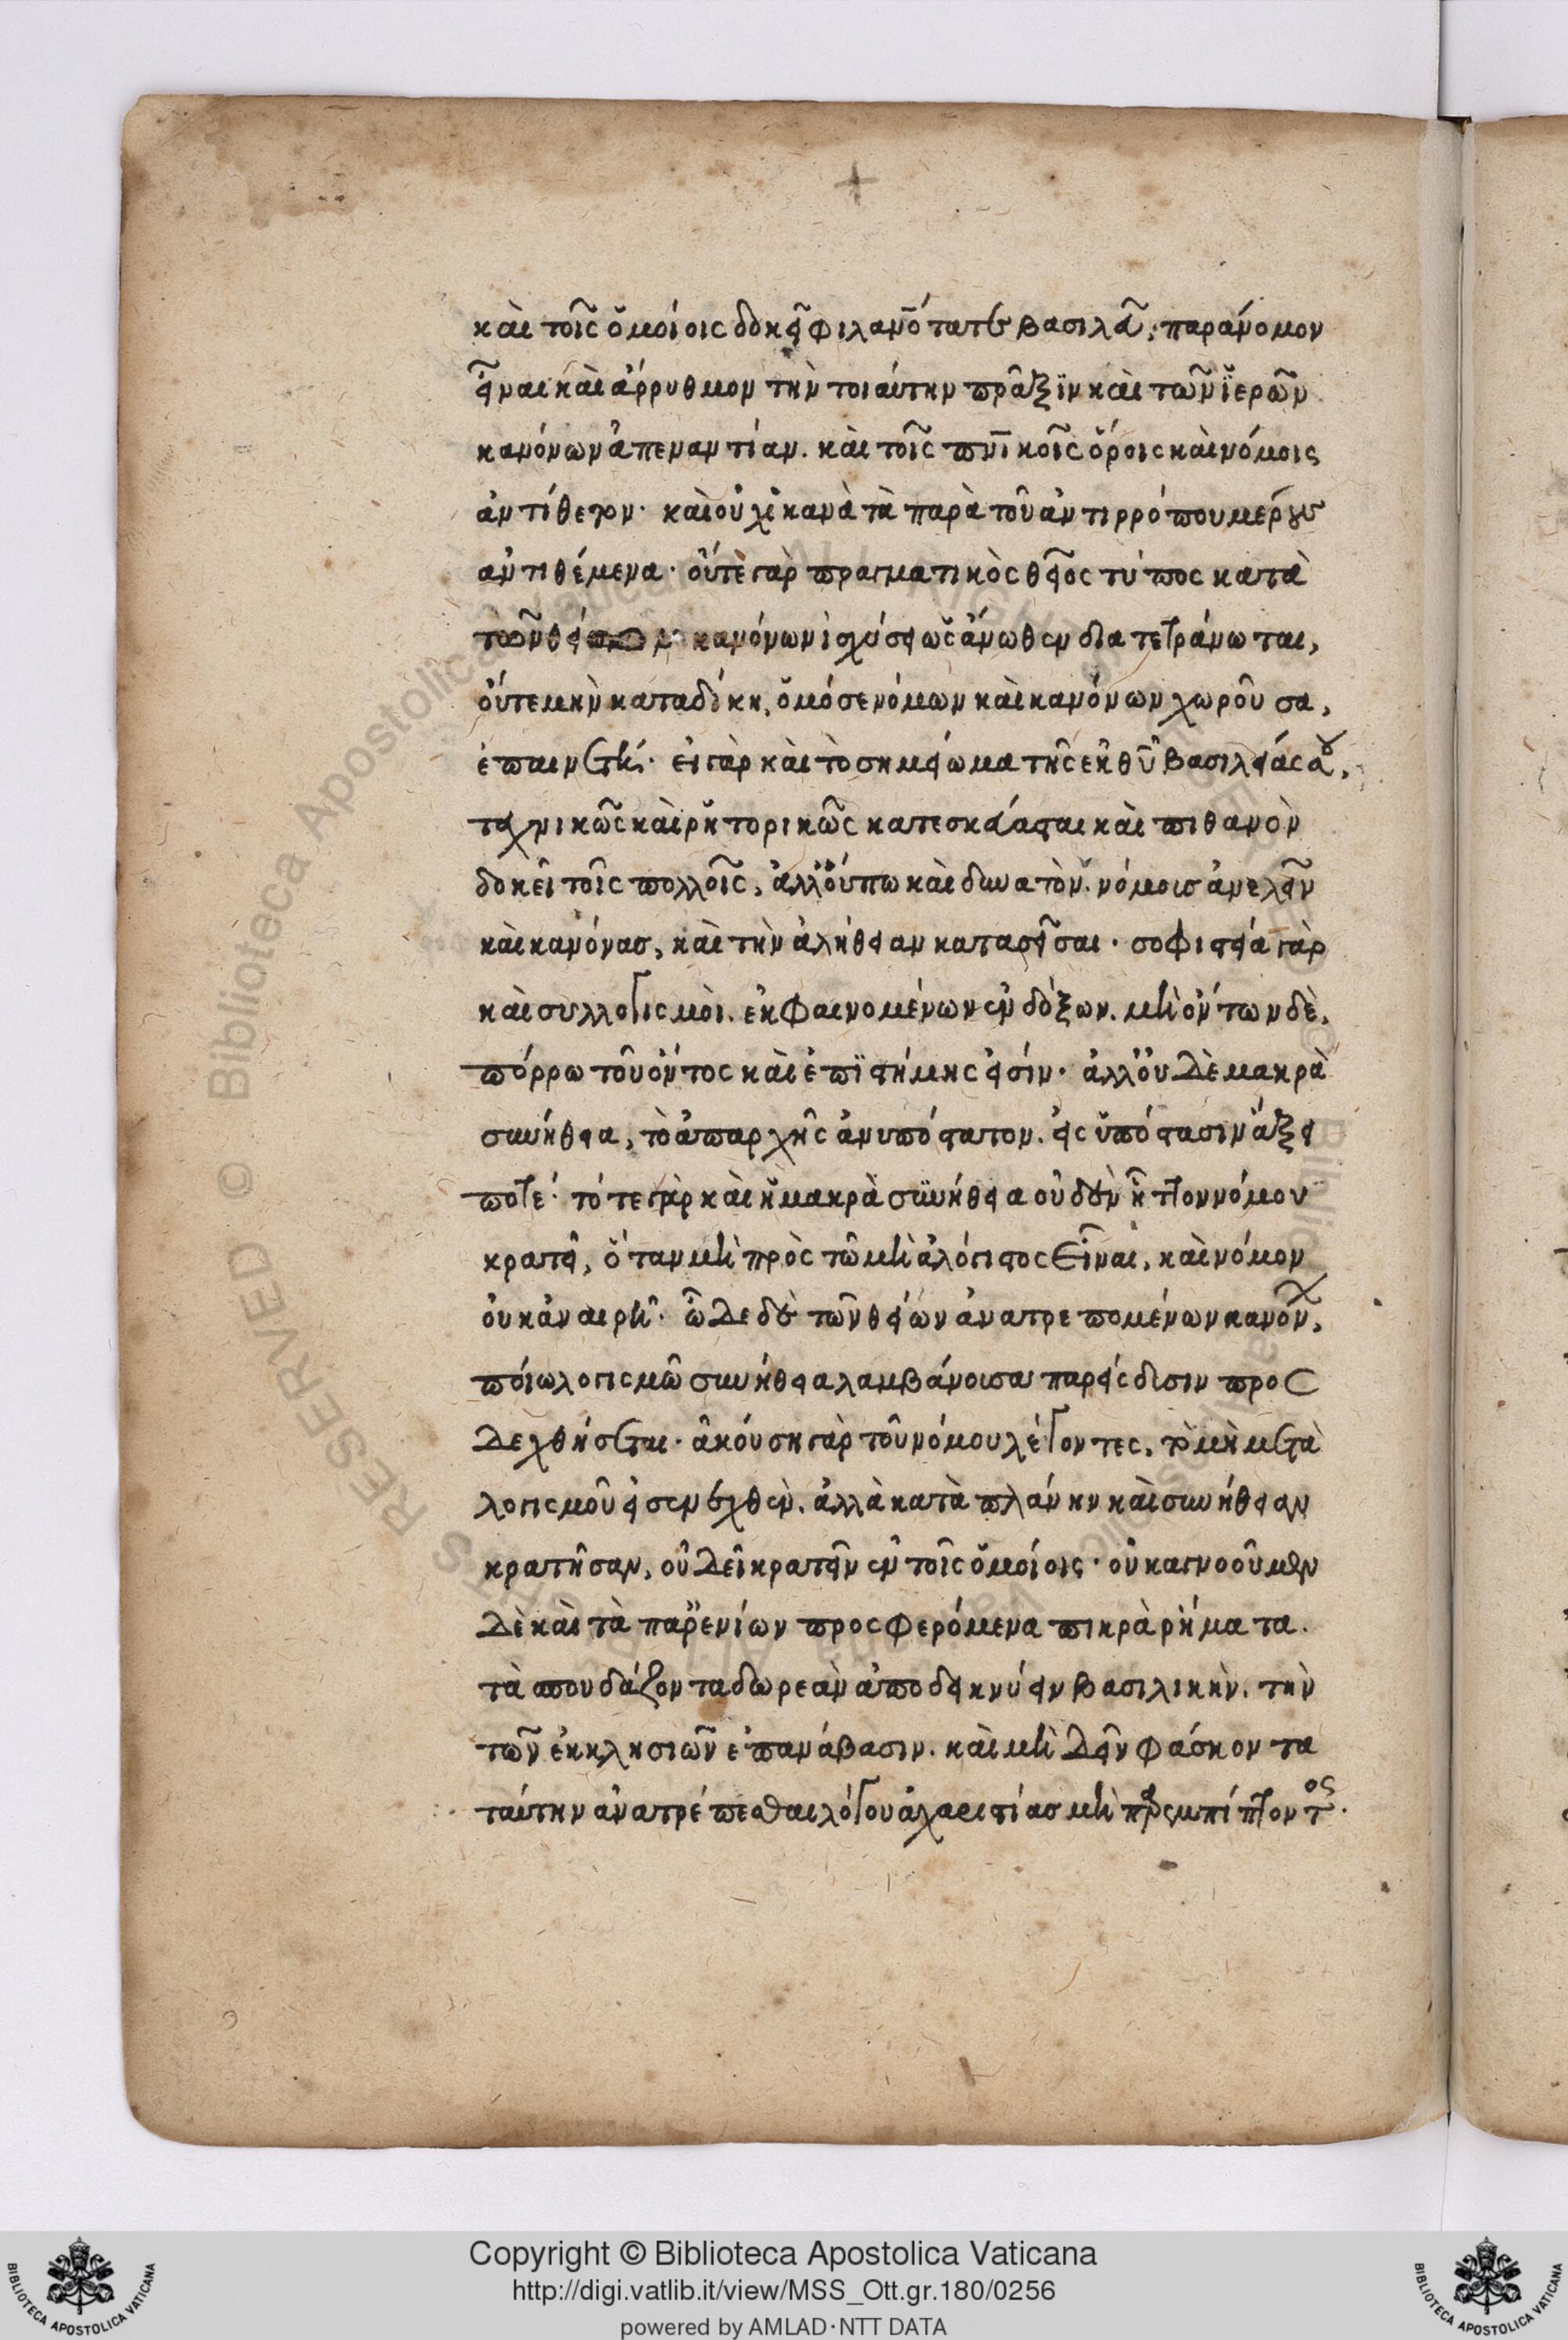 καὶ τοῖς ὁμοίοις δοκεῖ φιλανο̅τατε βασιλεῦ, παράνομον
εἶναι καὶ ἄρρυθμον τὴν τοιαύτην πρᾶξϊν καὶ τῶν ϊερῶν
κανόνων ἀπεναντίαν. καὶ τοῖς πνι̅κοῖς ὅροις καὶ νόμοις
ἀντίθετον· καὶ οὐχ ἱκανὰ τὰ παρὰ τοῦ ἀντιρρόπου μέρους
ἀντιθέμενα· οὔτε γὰρ πραγματικὸς θεῖος τύπος κατὰ
τῶν θεί κανόνων ἰσχύσει ὡς ἄνωθεν διατετράνωται,
οὔτε μὴν καταδίκη, ὁμόσε νόμων καὶ κανόνων χωροῦσα,
ἐπαινετή· εἰ γὰρ καὶ τὸ σημείωμα τῆς ἐκ θῡ βασιλείας σου,
τεχνικῶς καὶ ῥητορικῶς κατεσκεύασται καὶ πιθανὸν
δοκεῖ τοῖς πολλοῖς, ἀλλ' οὔπω καὶ δυνατὸν. νόμοισ ἀνελεῖν
καὶ κανόνασ, καὶ τὴν ἀλήθειαν κατασεῖσαι· σοφιστεία γὰρ
καὶ συλλογισμὸι. ἐκ φαινομένων ἐνδόξων. μὴ ὄντων δὲ,
πόρρω τοῦ ὄντος καὶ ἐπϊστήμης εἰσίν· ἀλλ' οὐδὲ μακρὰ
συνήθεια, τὸ ἀπαρχῆς ἀνυπόστατον. εἰς ὑπόστασιν ἄξει
ποτέ· τότε γὰρ καὶ ἡ μακρὰ συνήθεια οὐδὲν ἧττον νόμου
κρατεῖ, ὅταν μὴ πρὸς τῶ μὴ ἀλόγιστος εἶναι, καὶ νόμον
οὐκ ἀναιρῆ· ὧδε δὲ τῶν θείων ἀνατρεπομένων κανόνων,
ποίω λογισμῶ συνήθεια λαμβάνουσα παρείσδυσιν προς
δεχθήσεται· ἀκούση γὰρ τοῦ νόμου λέγοντες, τὸ μὴ μετὰ
λογισμοῦ εἰσενεχθὲν. ἀλλὰ κατὰ πλάνην καὶ συνήθειαν
κρατῆσαν, οὐ δεῖ κρατεῖν ἐν τοῖς ὁμοίοις· οὐκ αγνοοῦμεν
δὲ καὶ τὰ παρ' ἐνίων προσφερόμενα πικρὰ ρήματα.
τὰ σπουδάζοντα δωρεὰν ἀποδεικνύειν βασιλικὴν. τὴν
τῶν ἐκκλησιῶν ἐπανάβασιν. καὶ μὴ δεῖν φάσκοντα
ταύτην ἀνατρέπεσθαι λόγου ἀχαριστίασ μὴ παρεμπίπτοντος.
Copyright © Biblioteca Apostolica Vaticana
http://digi.vatlib.it/view/MSS_Ott.gr.180/0256
powered by AMLAD·NTT DATA